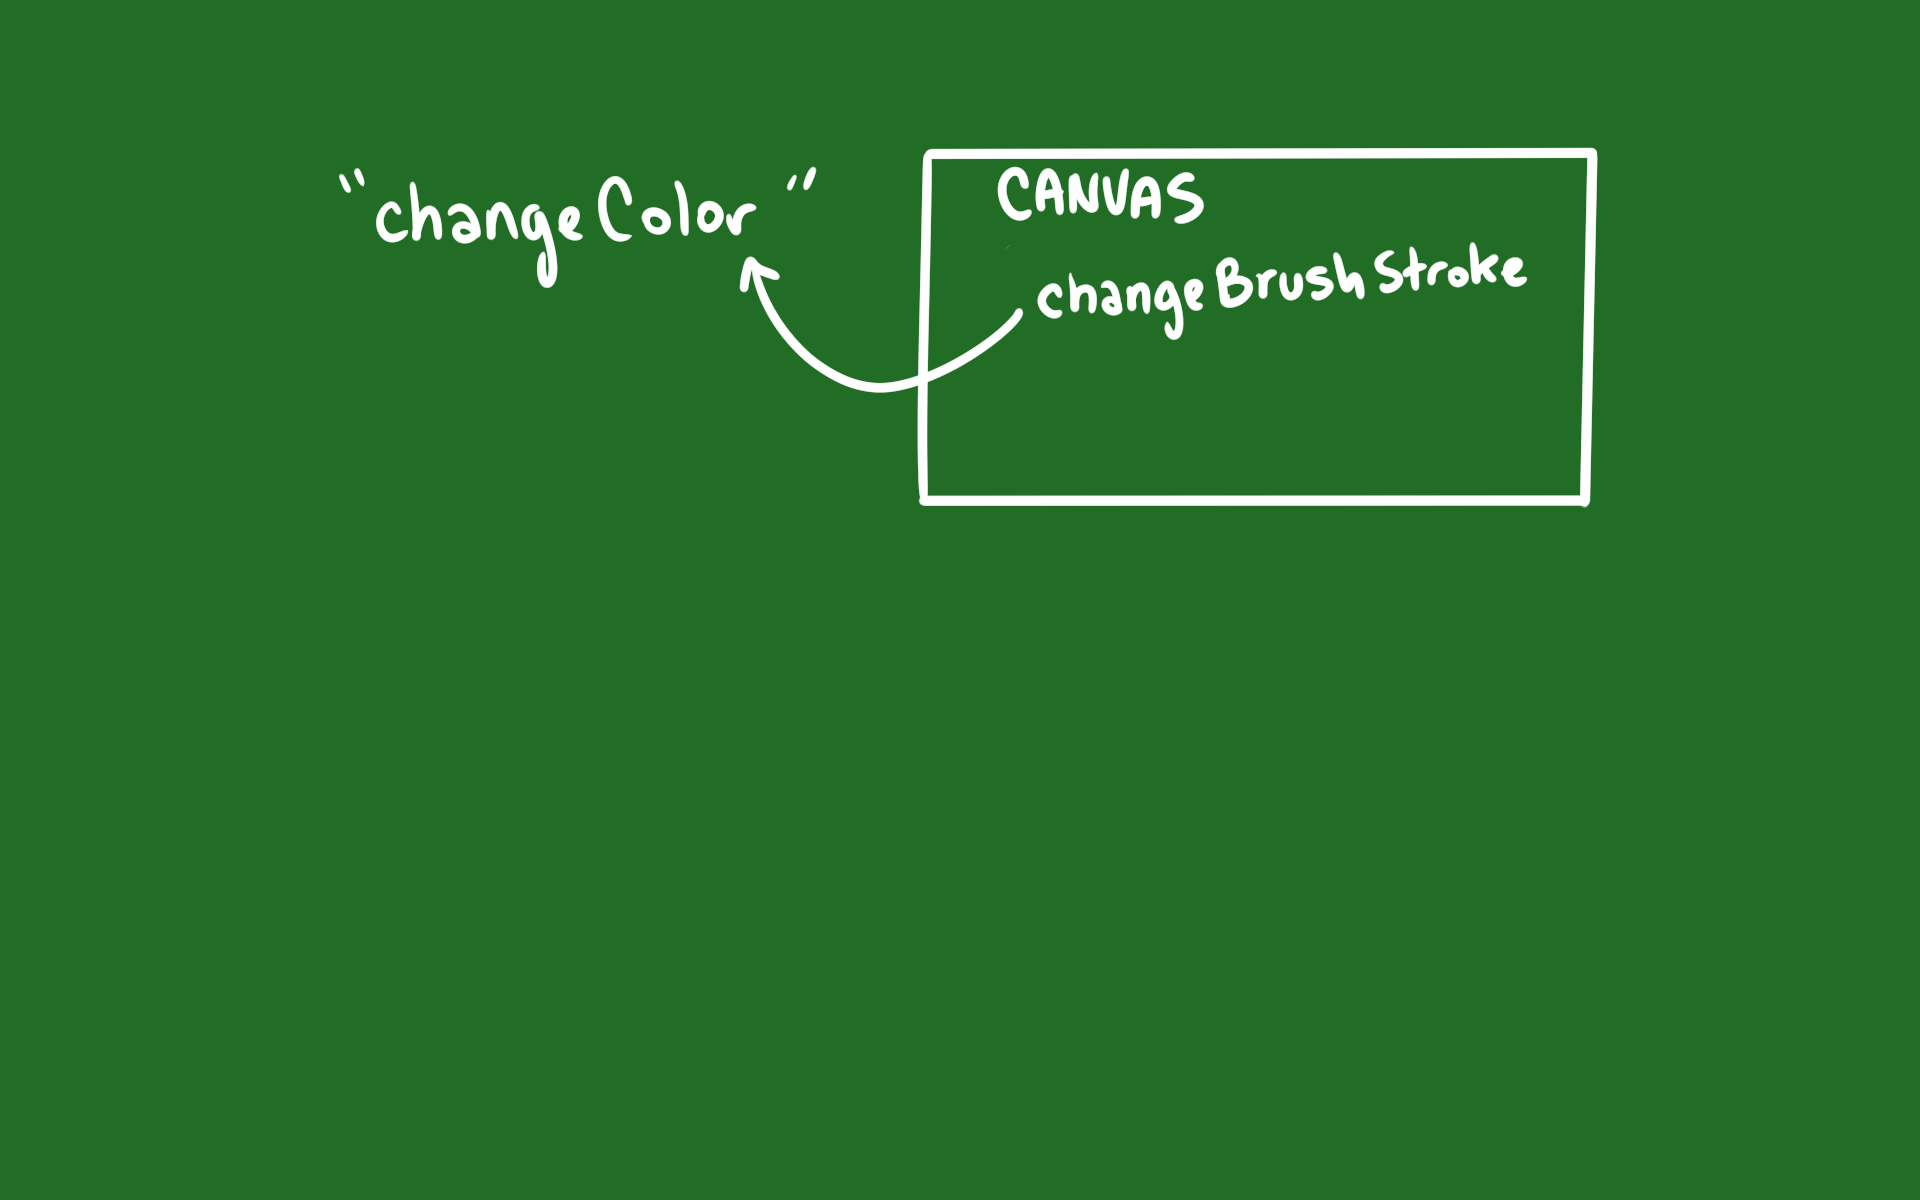 "changeColor"
CANVAS
changeBrushStroke